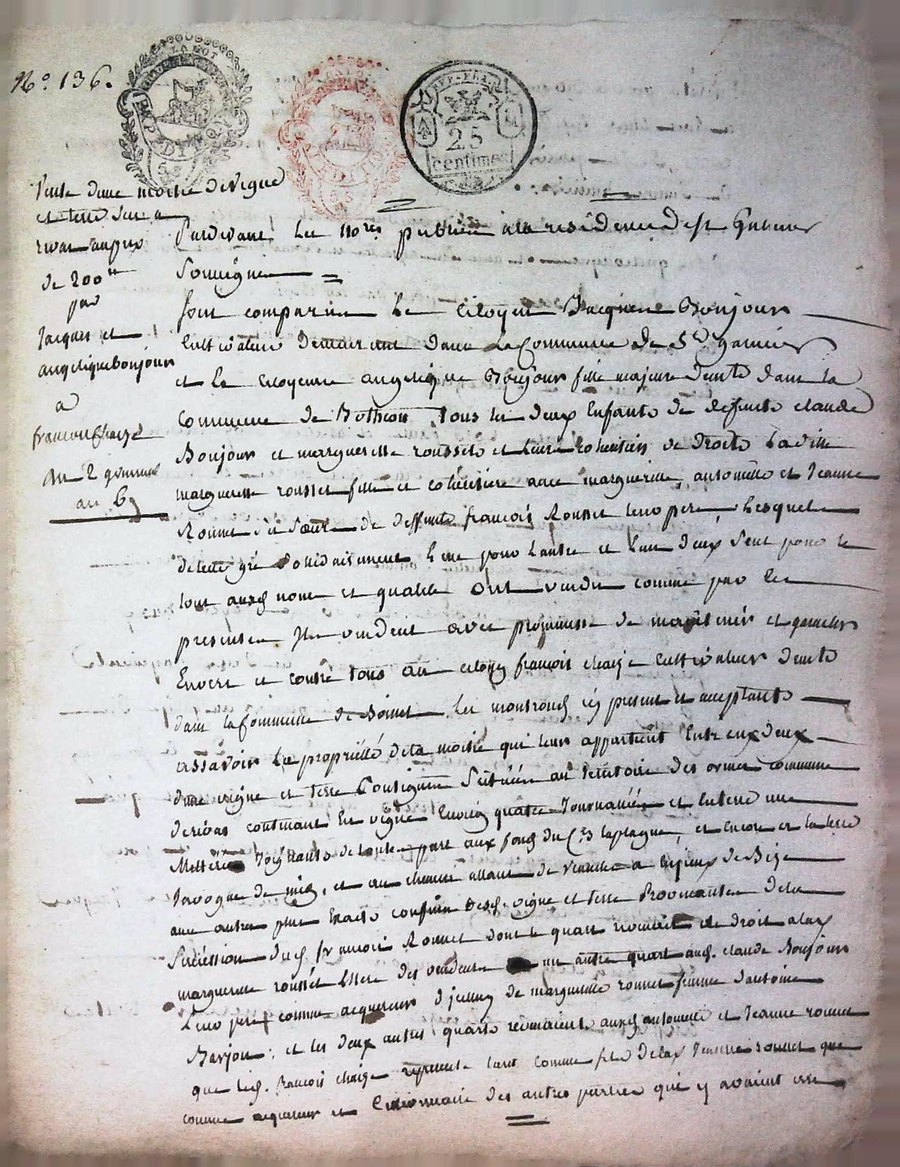 N.° 136.
LA LOI
EXPEDITION
REP. FRA.
25
centimes
Vente d'une moitié de vigne
et terre sur a
rivas au prix
de 200tt
par
Jacques et
angelique bonjour
a
francois chaize
du 2
an 6
Pardevant les nores publics a la residence de st
Soussignés
sont comparus le citoyen Jacques Bonjour
cultivateur demeurant dans la Commune de St.
et la citoyenne angelique Bonjour fille majeure demte dans la
commune de Bothéon tous les deux Enfants de defunts claude
Bonjour et marguerite rousset et leurs heritiers de droits ladite
marguerite rousset fille et cohéritière avec marguerite, antoinette et Jeanne
Ronnet ses sœurs de deffunt françois Ronnet leur père, Lesquels
de leur gré solidairement l'un pour l'autre et l'un d'eux seul pour le
tout auxd nom et qualité ont vendu comme par les
presentes Ils vendent avec promesse de maintenir et garantir
Envers et contre tous au citoyen françois chaize cultivateur demte
dans la Commune de Boisset les montrond icy present et acceptant
assavoir La propriété de la moitié qui leur appartient entre eux deux
d'une vigne et terre Contigues Scituées au territoire des ormes commune
de rivas contenant En vigne Environ quatre Journaliés et en terre une
Metterée Joignants de toute part aux fonds du Cen laplagne, et encore et la terre
Javogue de midy, et au chemin allant de
aux autres plus exacts confins desd. vigne et terre Provenantes de la
Succession dud. francois Ronnet dont le quart revenait de droit a lad
marguerite rousset mere des vendeurs un autre quart aud. claude Bonjour
Leur pere comme acquereur d'jcelluy de marguerite ronnet femme d'antoine
et les deux autres quarts revenaient auxd. antoinette et Jeanne ronnet
que led. francois chaize represente tant comme fils de lad Jeanne ronnet que
comme acquereur et Cessionnaire des autres parties qui y avaient